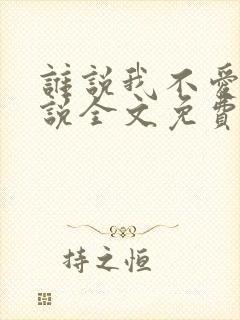 誰說我不愛
說全文免費
持之恒